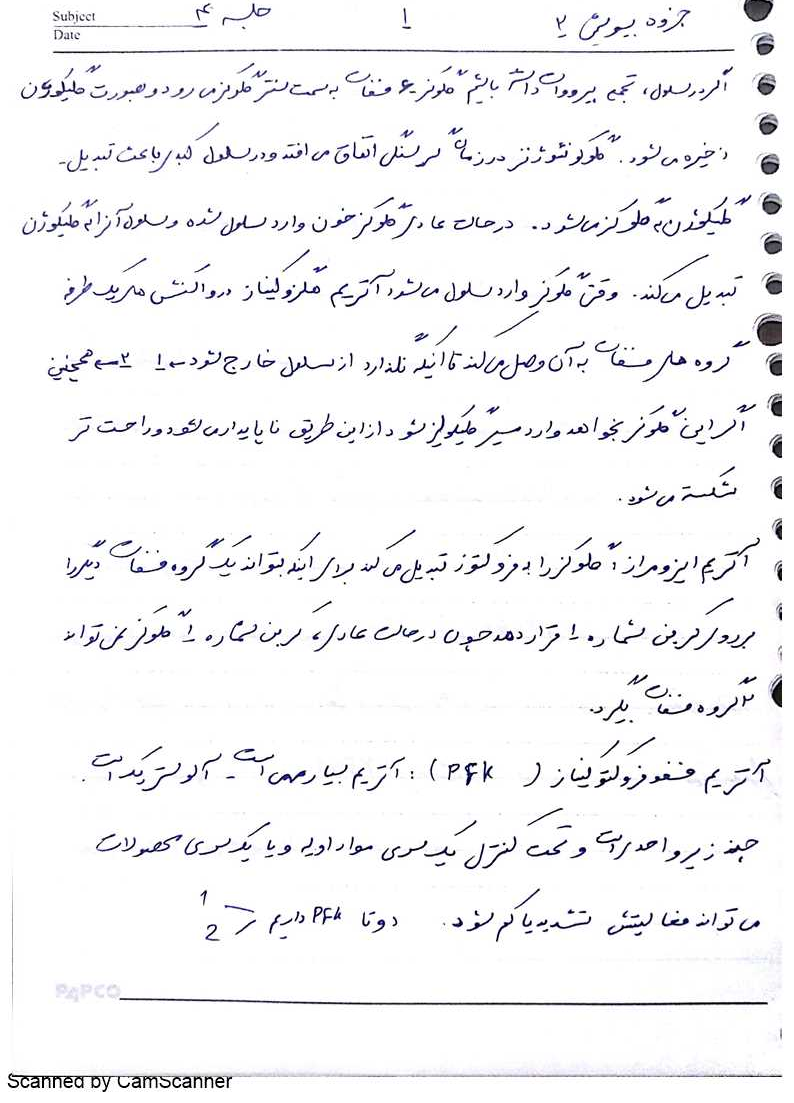 Subject
Date
جلسه ۴
۱
جزوه بیوشیمی ۲
اگر در سلول، تجمع پیرووات داشته باشیم گلوکز ۶ فسفات به سمت سنتز گلوکز می رود و بصورت گلیکوژن
ذخیره می شود. گلوکونئوژنز در زمان گرسنگی اتفاق می افتد و در سلول کبدی باعث تبدیل
گلیکوژن به گلوکز می شود. در حالت عادی گلوکز خون وارد سلول شده و سلول آنرا به گلیکوژن
تبدیل می کند. وقتی گلوکز وارد سلول می شود آنزیم هگزوکیناز در واکنش های یک طرفه
گروه های فسفات به آن وصل می کند تا اینکه نگذارد از سلول خارج شود ← ۱ ۲ ← همچنین
اگر این گلوکز بخواهد وارد مسیر گلیکولیز شود از این طریق ناپایدار می شود و راحت تر
شکسته می شود.
آنزیم ایزومراز گلوکز را به فروکتوز تبدیل می کند برای اینکه بتواند یک گروه فسفات دیگر را
بر روی کربن شماره ۱ قرار دهد چون در حالت عادی، کربن شماره ۱ گلوکز نمی تواند
گروه فسفات بگیرد.
آنزیم فسفوفروکتوکیناز ( PFK ) : آنزیم بسیار مهمی است - آلوستریک است.
چند زیر واحدی است و تحت کنترل یک سری مواد اولیه و یا یک سری محصولات
می تواند فعالیتش تشدید یا کم شود. دو تا PFK داریم 1 2
PAPCO
Scanned by CamScanner